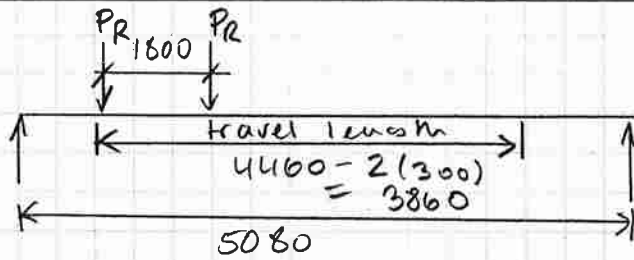 PR PR
1800
travel length
4460 - 2(300)
= 3860
5080